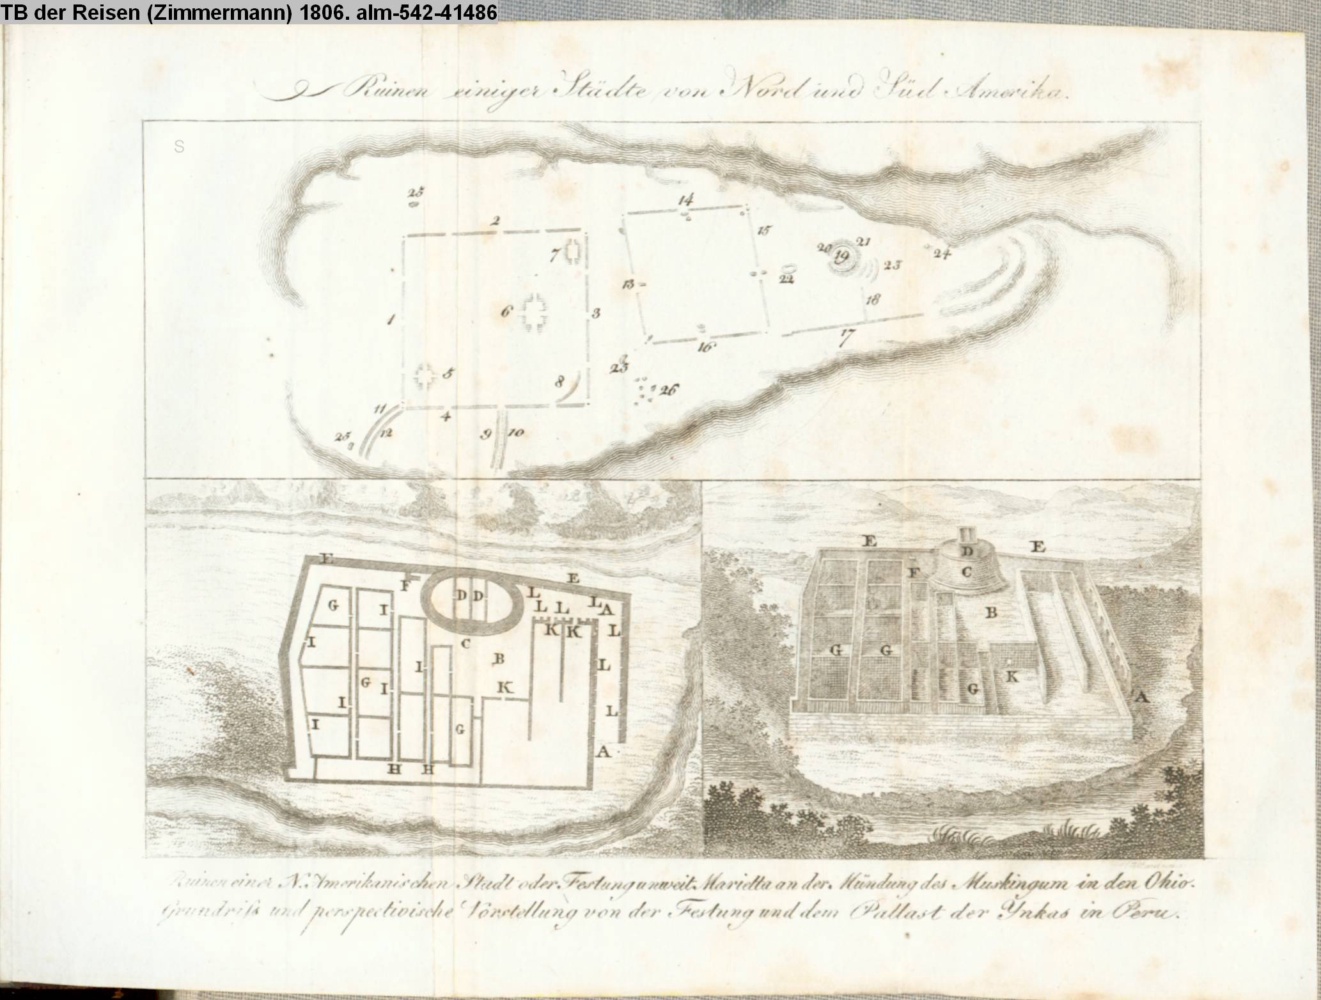 TB der Reisen (Zimmermann) 1806. alm-542-41486
Ruinen einiger Städte von Nord und Süd Amerika.
S
25
2
14
7
15
20 21
19
24
22
23
13
6
3
1
18
17
16
5
8
23
26
11
4
12
25
9 10
E
E
F
D D
L
L L
L
A
G
I
K K
L
I
C
I
B
L
G
I
K
I
L
I
G
A
H H
E
E
D
F
C
B
G
G
K
G
A
Ruinen einer N. Amerikanischen Stadt oder Festung unweit Marietta an der Mündung des Muskingum in den Ohio.
Grundriſs und perspectivische Vorstellung von der Festung und dem Pallast der Ynkas in Peru.